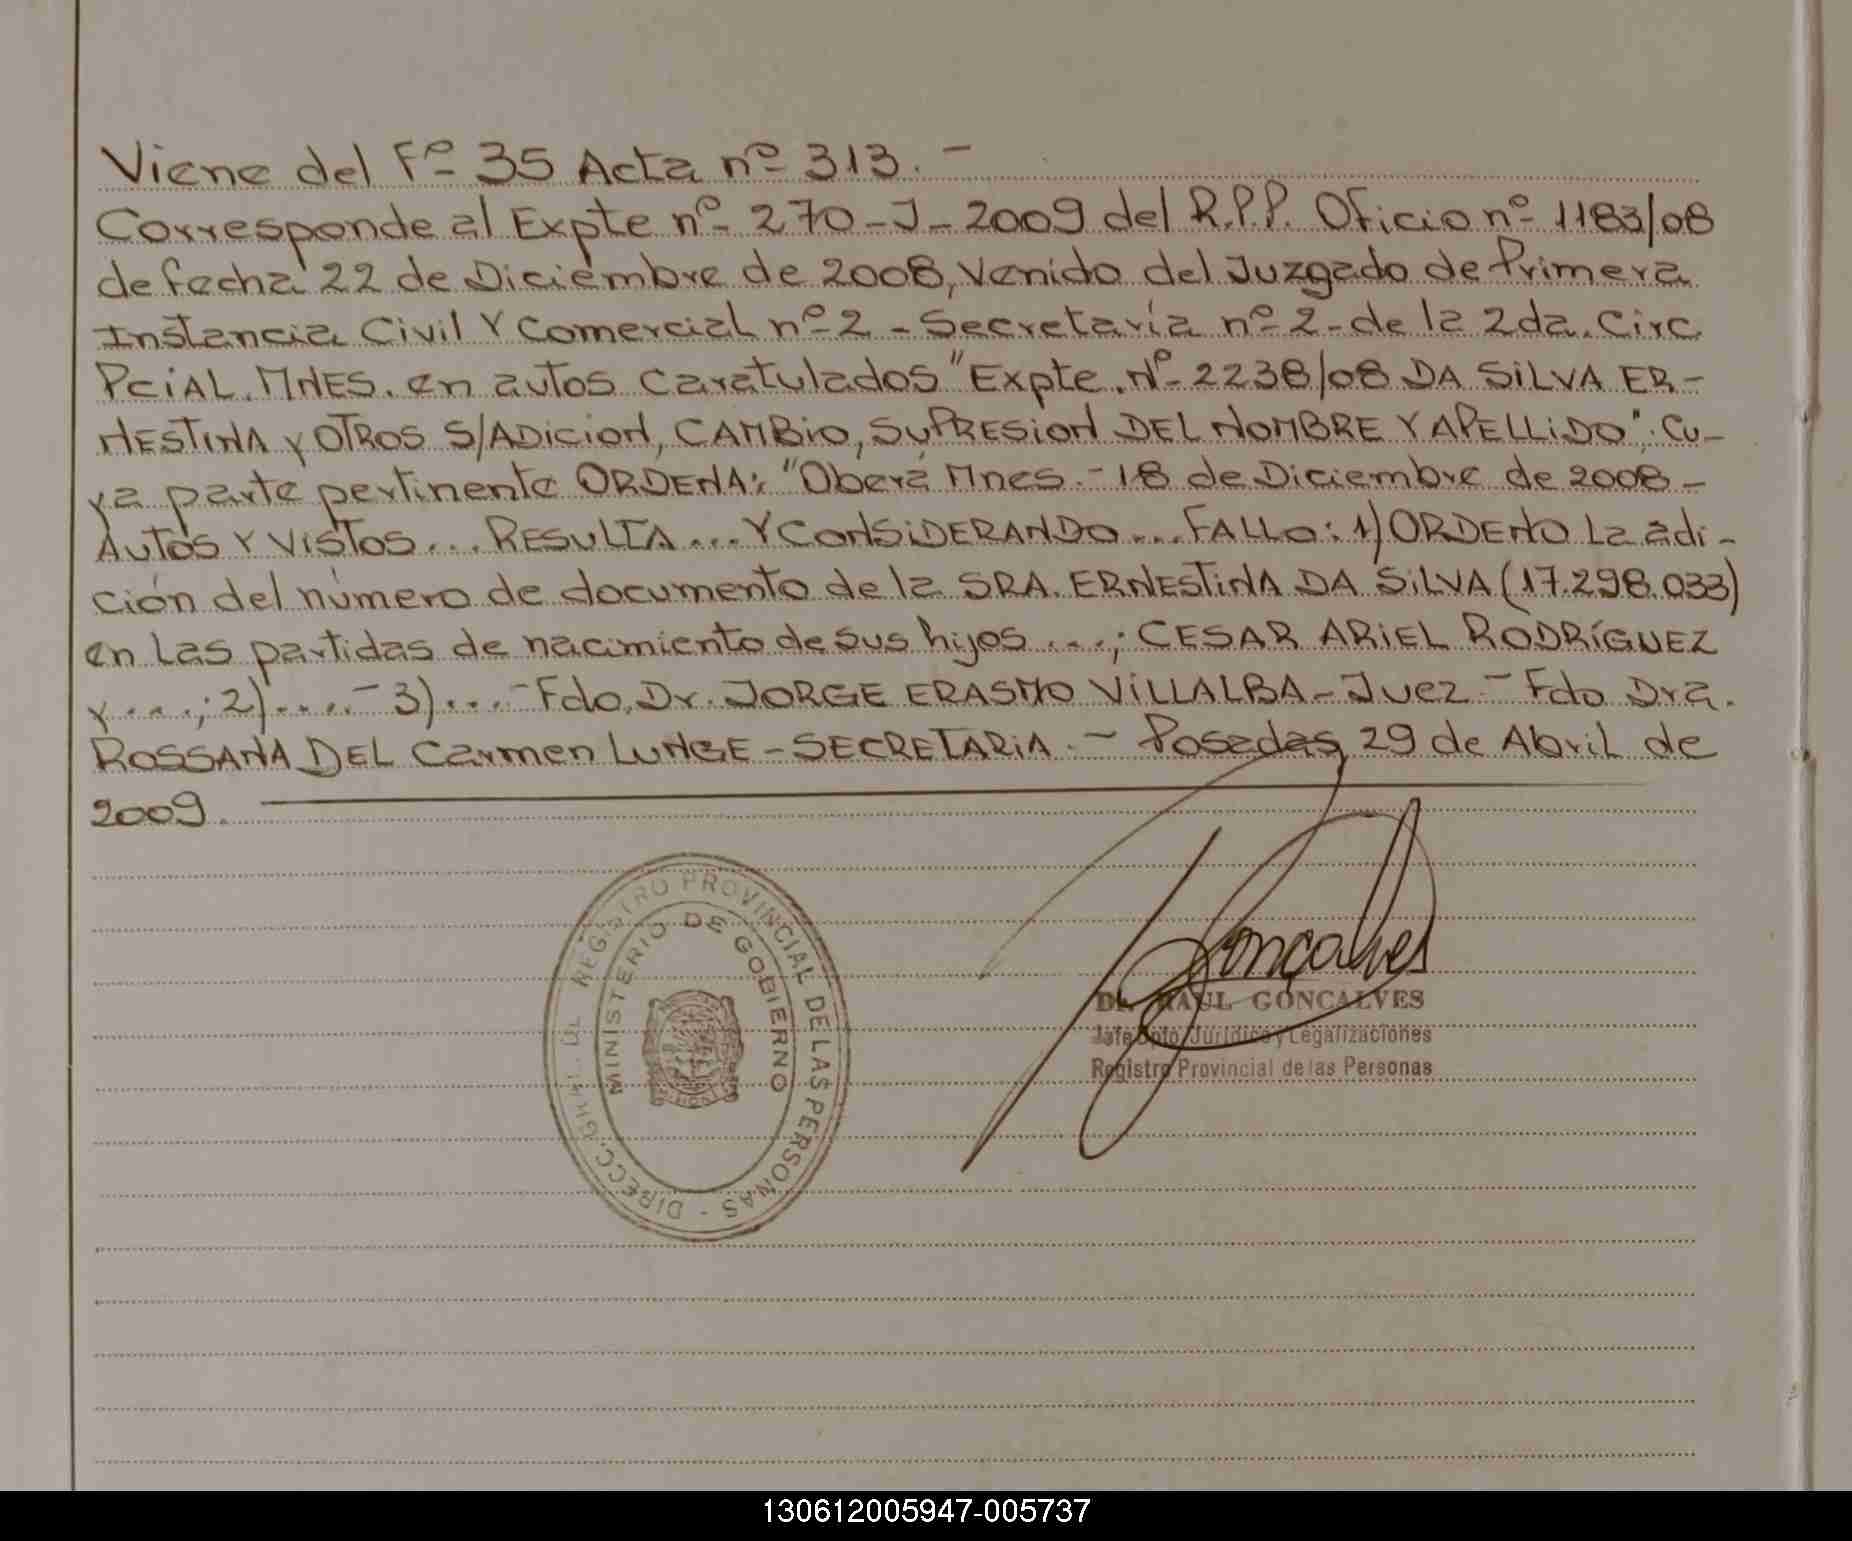 Viene del Fº 35 Acta nº 313.-
Corresponde al Expte nº 270-J-2009 del R.P.P. Oficio nº 1183/08
de fecha 22 de Diciembre de 2008, Venido del Juzgado de Primera
Instancia Civil Y Comercial nº 2 - Secretaría nº 2- de la 2da. Circ
PCiAL. MNES. en autos caratulados "Expte. Nº 2238/08 DA SiLVA ER-
NESTINA y OTROS S/ADiCiON, CAMBiO, SUPRESiON DEL NOMBRE Y APELLiDO"; Cu-
ya parte pertinente ORDENA: "Oberá Mnes.- 18 de Diciembre de 2008-
AUTOS Y ViSTOS... RESULTA... Y CONSiDERANDO... FALLO: 1) ORDENO La adi-
ción del número de documento de la SRA. ERNESTiNA DA SiLVA (17.298.033)
en Las partidas de nacimiento de sus hijos ...; CESAR ARiEL RODRÍGUEZ
y ...; 2)....- 3)...- Fdo. Dr. JORGE ERASMO ViLLALBA - Juez - Fdo Dra.
ROSSANA DEL Carmen LUNGE - SECRETARiA.- Posadas, 29 de Abril de
2009.
REGISTRO PROVINCIAL DE LAS PERSONAS - DIRECC. GRAL. DL
MINISTERIO DE GOBIERNO
Gonçalves
Dr. RAUL GONCALVES
Jefe Dpto. Jurídico y Legalizaciones
Registro Provincial de las Personas
130612005947-005737